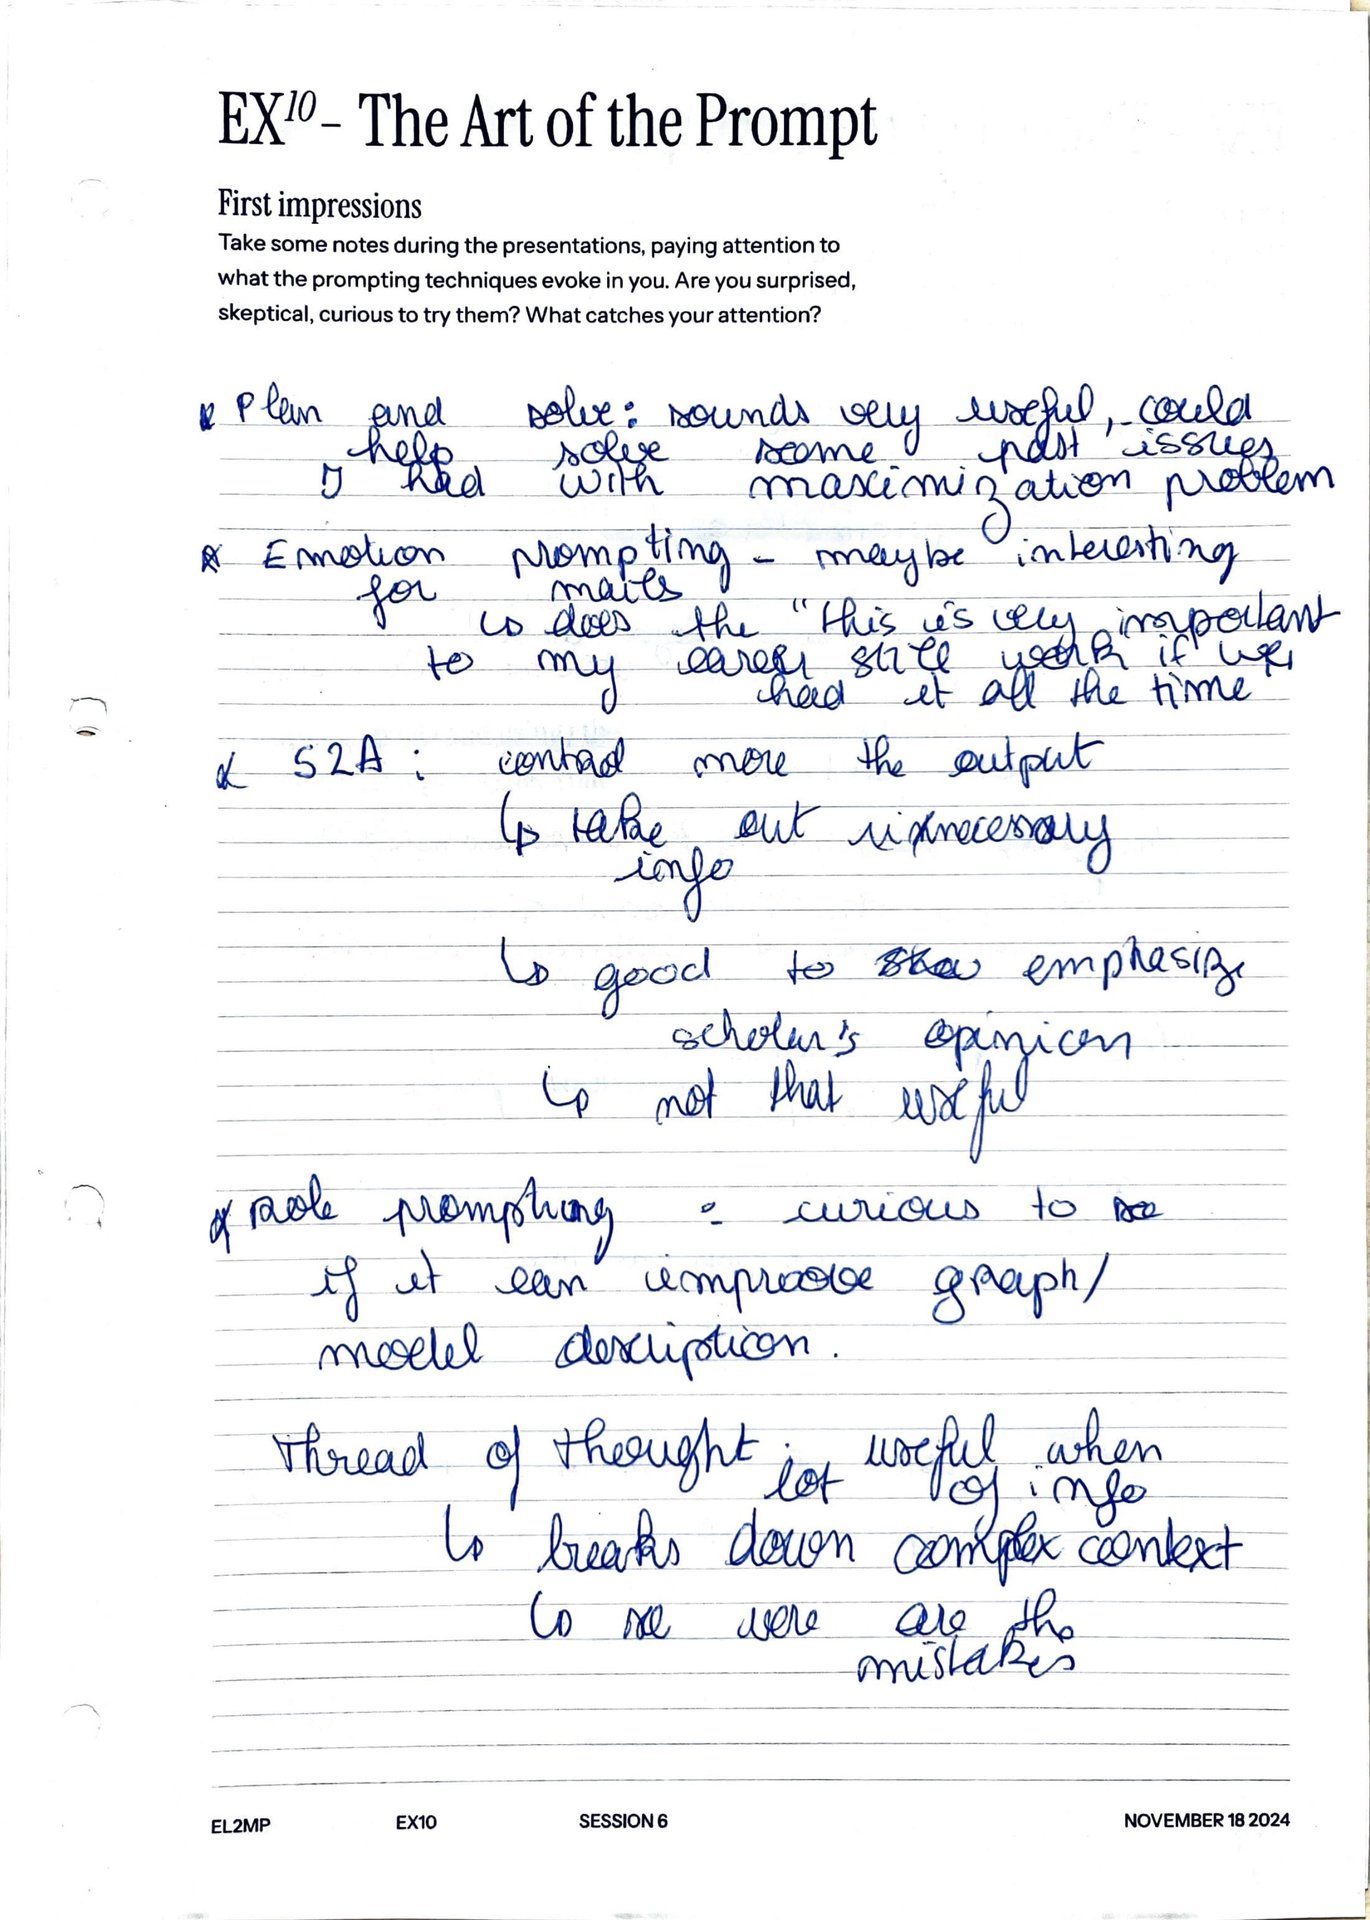 EX10 – The Art of the Prompt
First impressions
Take some notes during the presentations, paying attention to
what the prompting techniques evoke in you. Are you surprised,
skeptical, curious to try them? What catches your attention?
Plan and solve: sounds very useful, could
help solve some past issues
I had with maximization problem
Emotion prompting - maybe interesting
for mails
↳ does the "this is very important
to my career still work if we
had it all the time"
S2A: control more the output
↳ take out unnecessary
info
↳ good to emphasize
scholar's opinion
↳ not that useful
Role prompting: curious to see
if it can improove graph/
model description.
Thread of thought: useful when
lot of info
↳ breaks down complex context
↳ see were are the
mistakes
EL2MP EX10 SESSION 6 NOVEMBER 18 2024